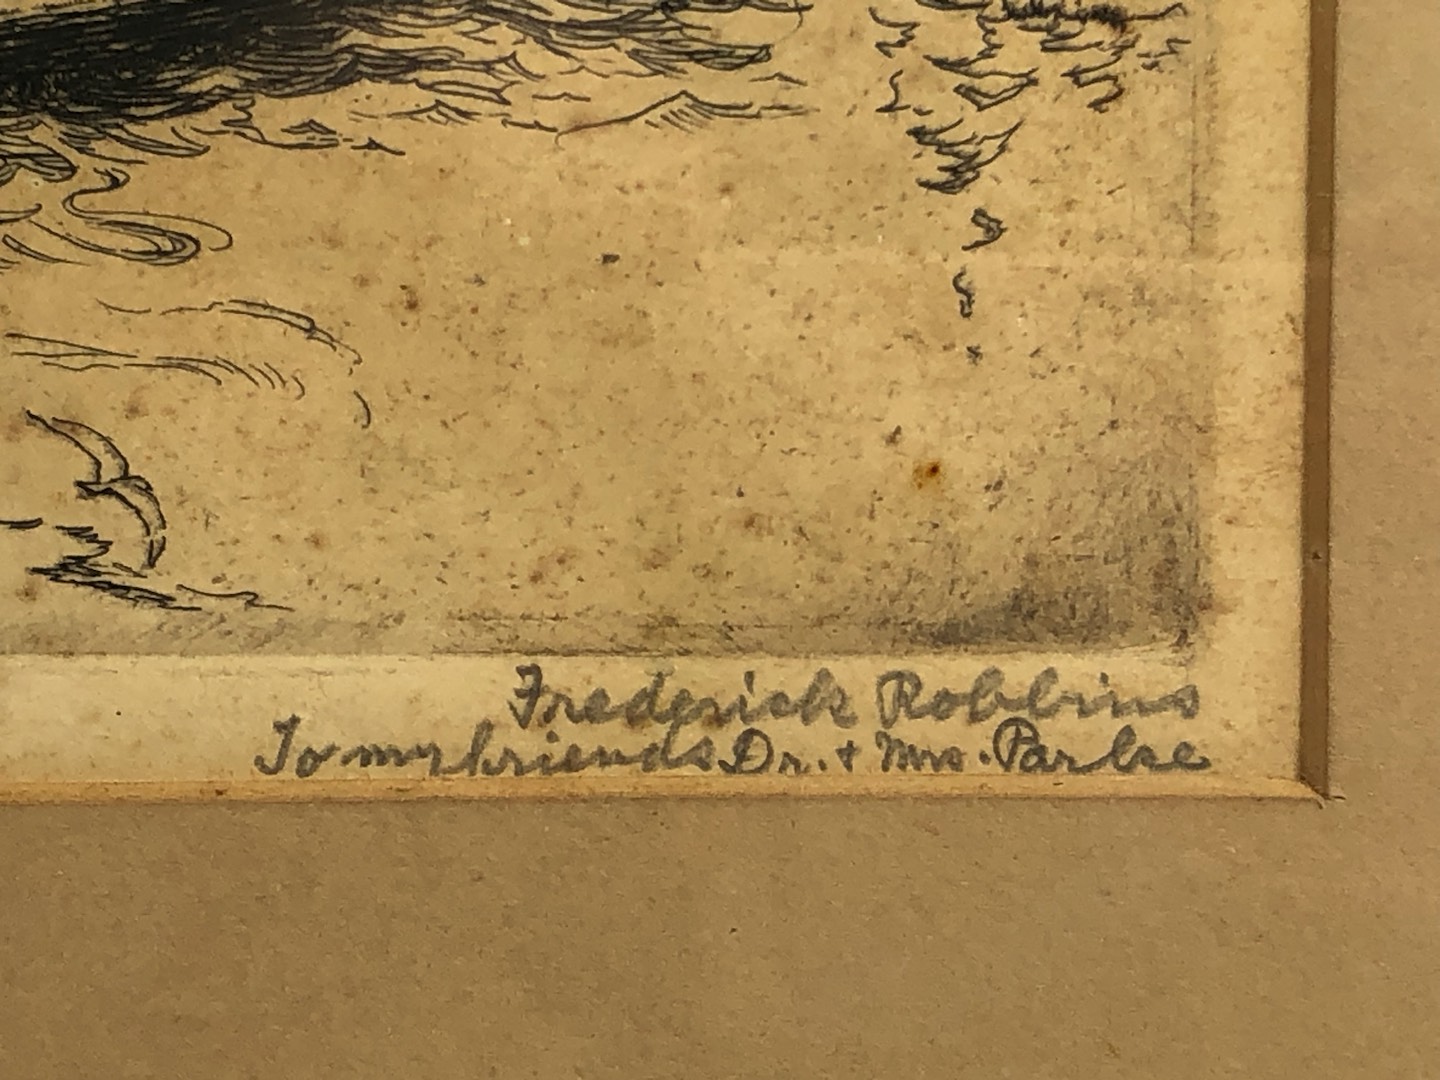 Frederick Robbins
To my friends Dr. + Mrs. Parke